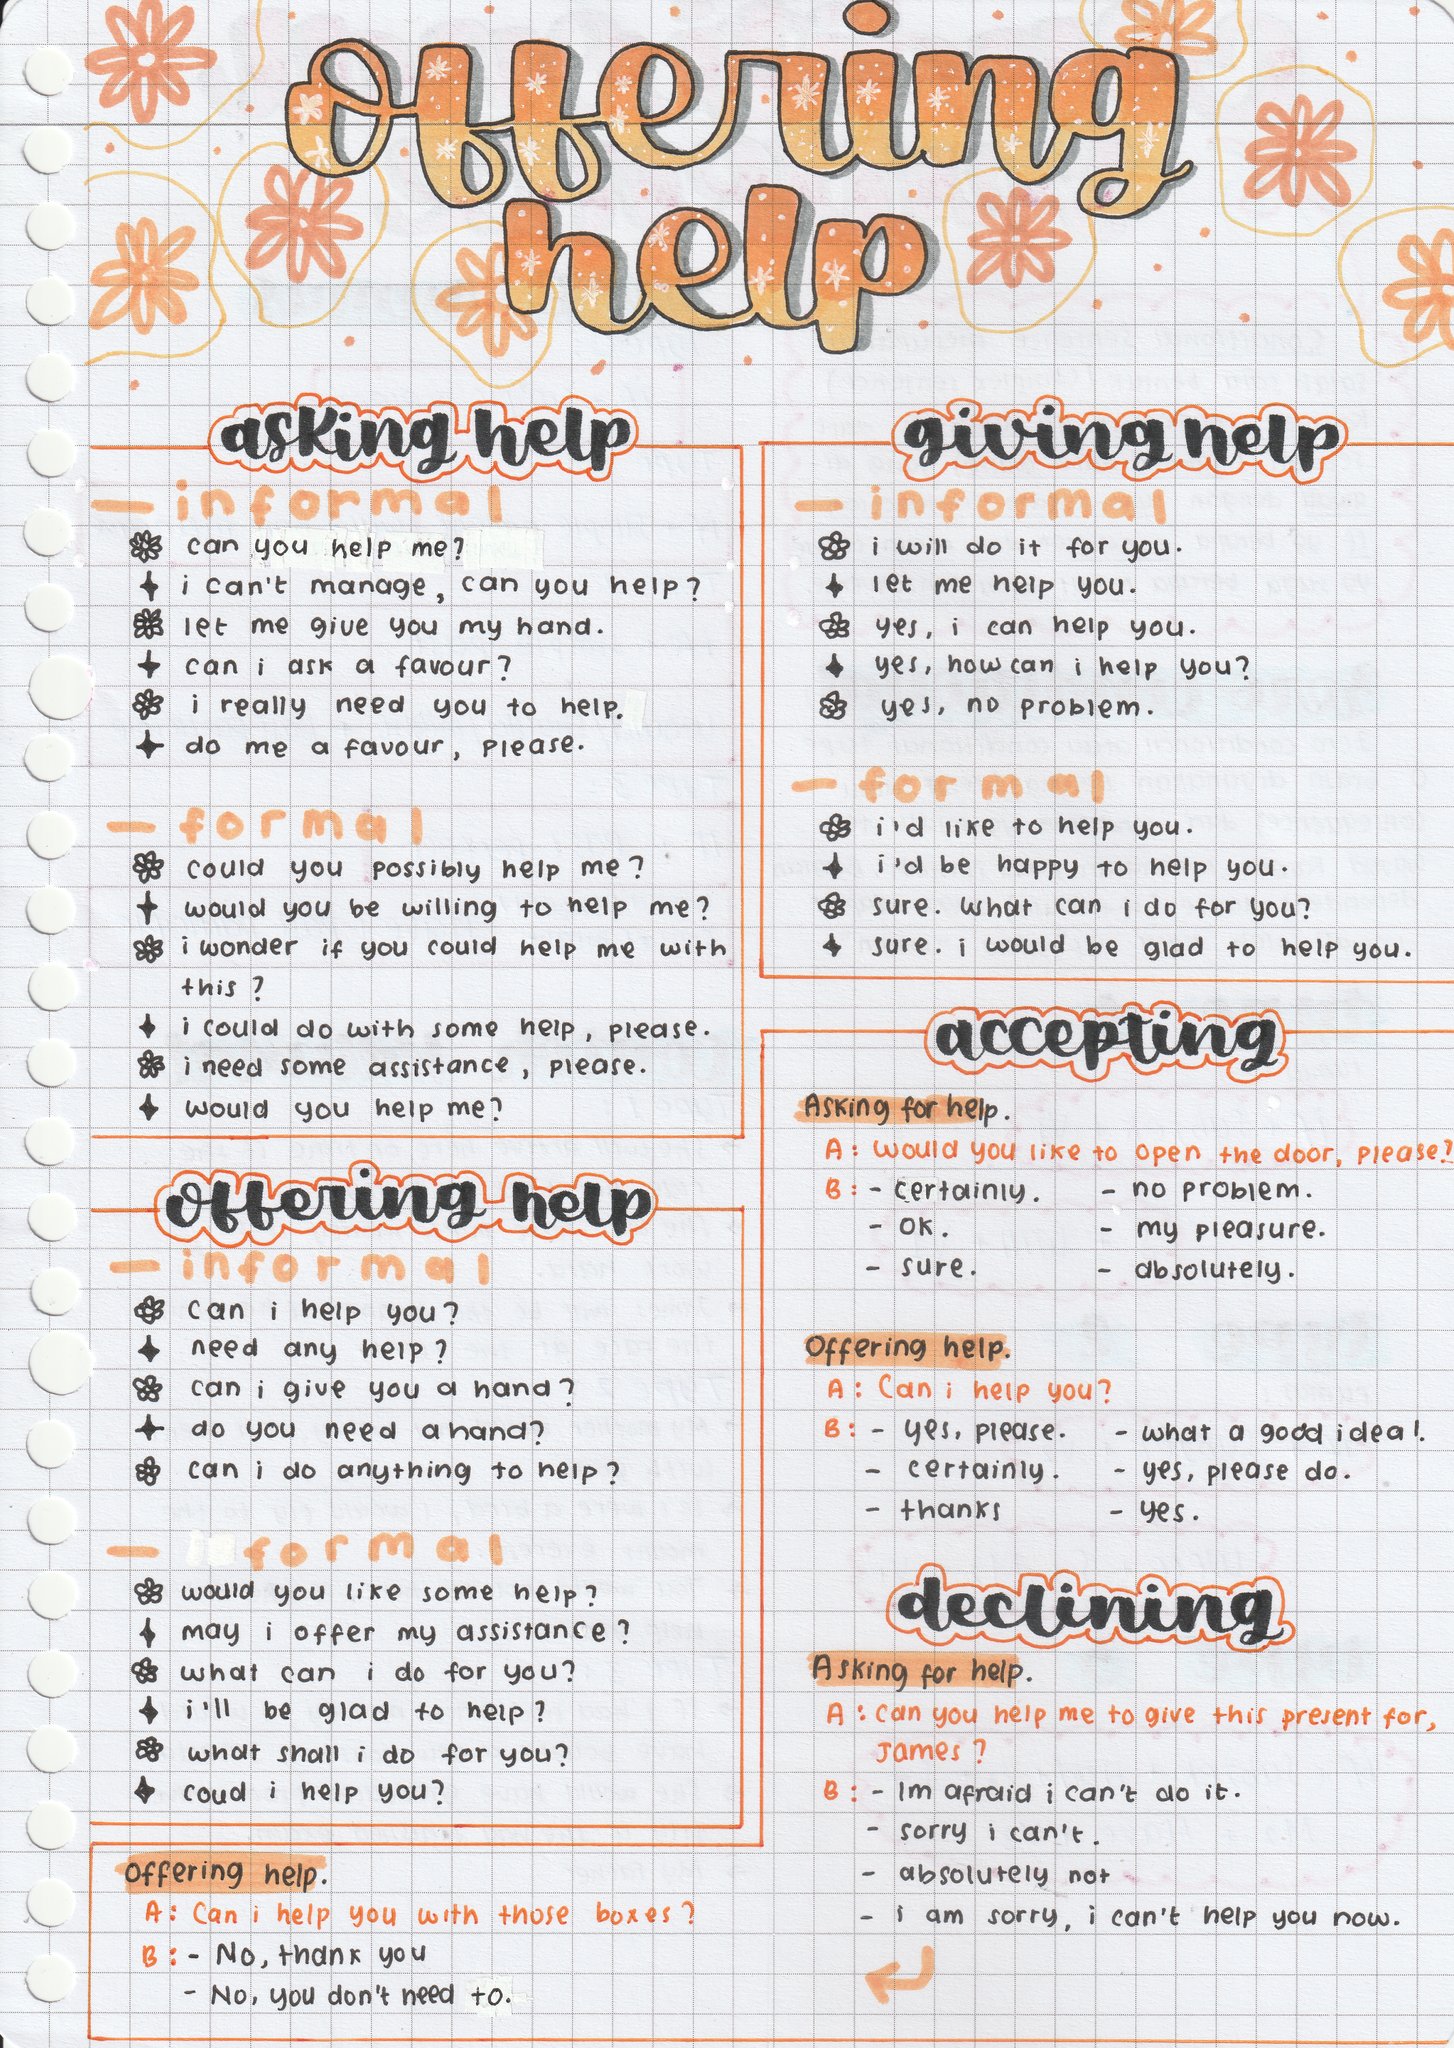 offering
help
asking help
- informal
can you help me?
i can't manage, can you help?
let me give you my hand.
can i ask a favour?
i really need you to help.
do me a favour, please.
- formal
could you possibly help me?
would you be willing to help me?
i wonder if you could help me with
this?
i could do with some help, please.
i need some assistance, please.
would you help me?
offering help
- informal
can i help you?
need any help?
can i give you a hand?
do you need a hand?
can i do anything to help?
- formal
would you like some help?
may i offer my assistance?
what can i do for you?
i'll be glad to help?
what shall i do for you?
coud i help you?
giving help
- informal
i will do it for you.
let me help you.
yes, i can help you.
yes, how can i help you?
yes, no problem.
- formal
i'd like to help you.
i'd be happy to help you.
sure. what can i do for you?
sure. i would be glad to help you.
accepting
Asking for help.
A: would you like to open the door, please?
B: - certainly. - no problem.
- ok. - my pleasure.
- sure. - absolutely.
Offering help.
A: Can i help you?
B: - yes, please. - what a good idea!.
- certainly. - yes, please do.
- thanks - yes.
declining
Asking for help.
A: Can you help me to give this present for,
James?
B: - Im afraid i can't do it.
- sorry i can't.
- absolutely not
- i am sorry, i can't help you now.
Offering help.
A: Can i help you with those boxes?
B: - No, thank you
- No, you don't need to.